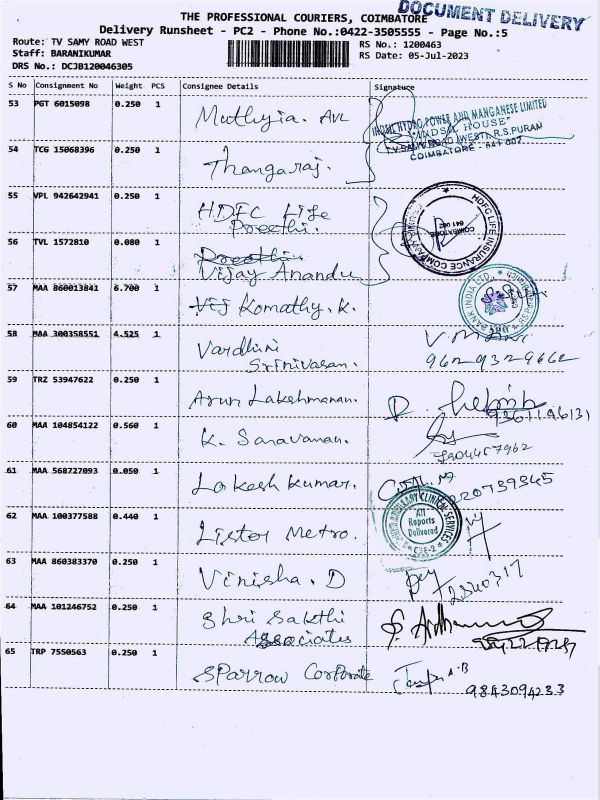 THE PROFESSIONAL COURIERS, COIMBATORE
DOCUMENT DELIVERY
Delivery Runsheet - PC2 - Phone No.:0422-3505555 - Page No.:5
Route: TV SAMY ROAD WEST
RS No.: 1200463
Staff: BARANIKUMAR
RS Date: 05-Jul-2023
DRS No.: DCJB120046305
S No Consignment No Weight PCS Consignee Details Signature
53 PGT 6015098 0.250 1 Muthyia. AVL
INDSIL HYDRO POWER AND MANGANESE LIMITED
"INDSIL HOUSE"
T.V.SAMY ROAD (WEST), R.S.PURAM
COIMBATORE - 641 002
54 TCG 15068396 0.250 1 Thangaraj.
55 VPL 942642941 0.250 1 HDFC Life
Preethi.
HDFC LIFE INSURANCE COMPANY
COIMBATORE
641 002
56 TVL 1572810 0.080 1 Preethi
Vijay Anandu
57 MAA 860013841 6.700 1 Vij Komathy. K.
BANK INDIA LTD.
58 MAA 300358551 4.525 1 Vardhini
Srinivasan.
9629329662
59 TRZ 53947622 0.250 1 Arun Lakshmanan.
9361196131
60 MAA 104854122 0.560 1 K. Saravanan.
61 MAA 568727093 0.050 1 Lokesh Kumar.
62 MAA 100377588 0.440 1 Lister Metro.
CLINICAL SERVICES
All
Reports
Delivered
CBE-2
63 MAA 860383370 0.250 1 Vinisha. D
64 MAA 101246752 0.250 1 Shri Sakthi
Associates
65 TRP 7550563 1 0.250 Sparrow Corporate
9843094233